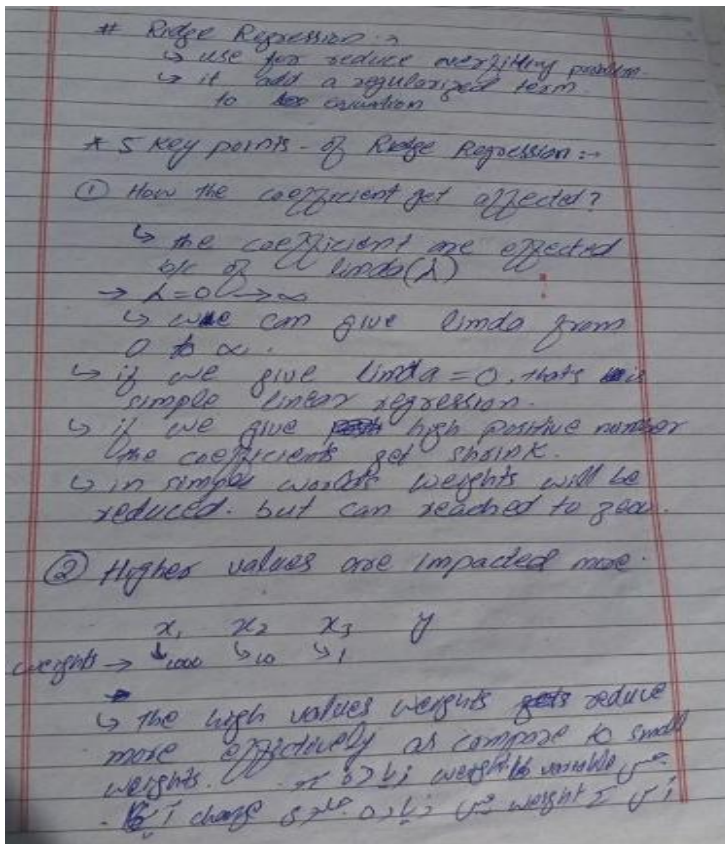 # Ridge Regression :→
↳ use for reduce overfitting problem.
↳ it add a regularized term
to equation
* 5 Key points - of Ridge Regression :→
① How the coefficient get affected?
↳ the coefficient are effected
b/c of limda(λ)
→ λ=0 → ∞
↳ we can give limda from
0 to ∞.
↳ if we give limda = 0. thats is
simple linear regression.
↳ if we give high positive number
the coefficients get shrink.
↳ in simple words weights will be
reduced. but can reached to zero.
② Higher values are impacted more.
x₁ x₂ x₃ y
weights → ↓1000 ↳10 ↳1
↳ the high values weights reduce
more effectively as compare to small
weights.
جس variable کا weight زیادہ
اس کے weight میں زیادہ جلدی change آئے گا